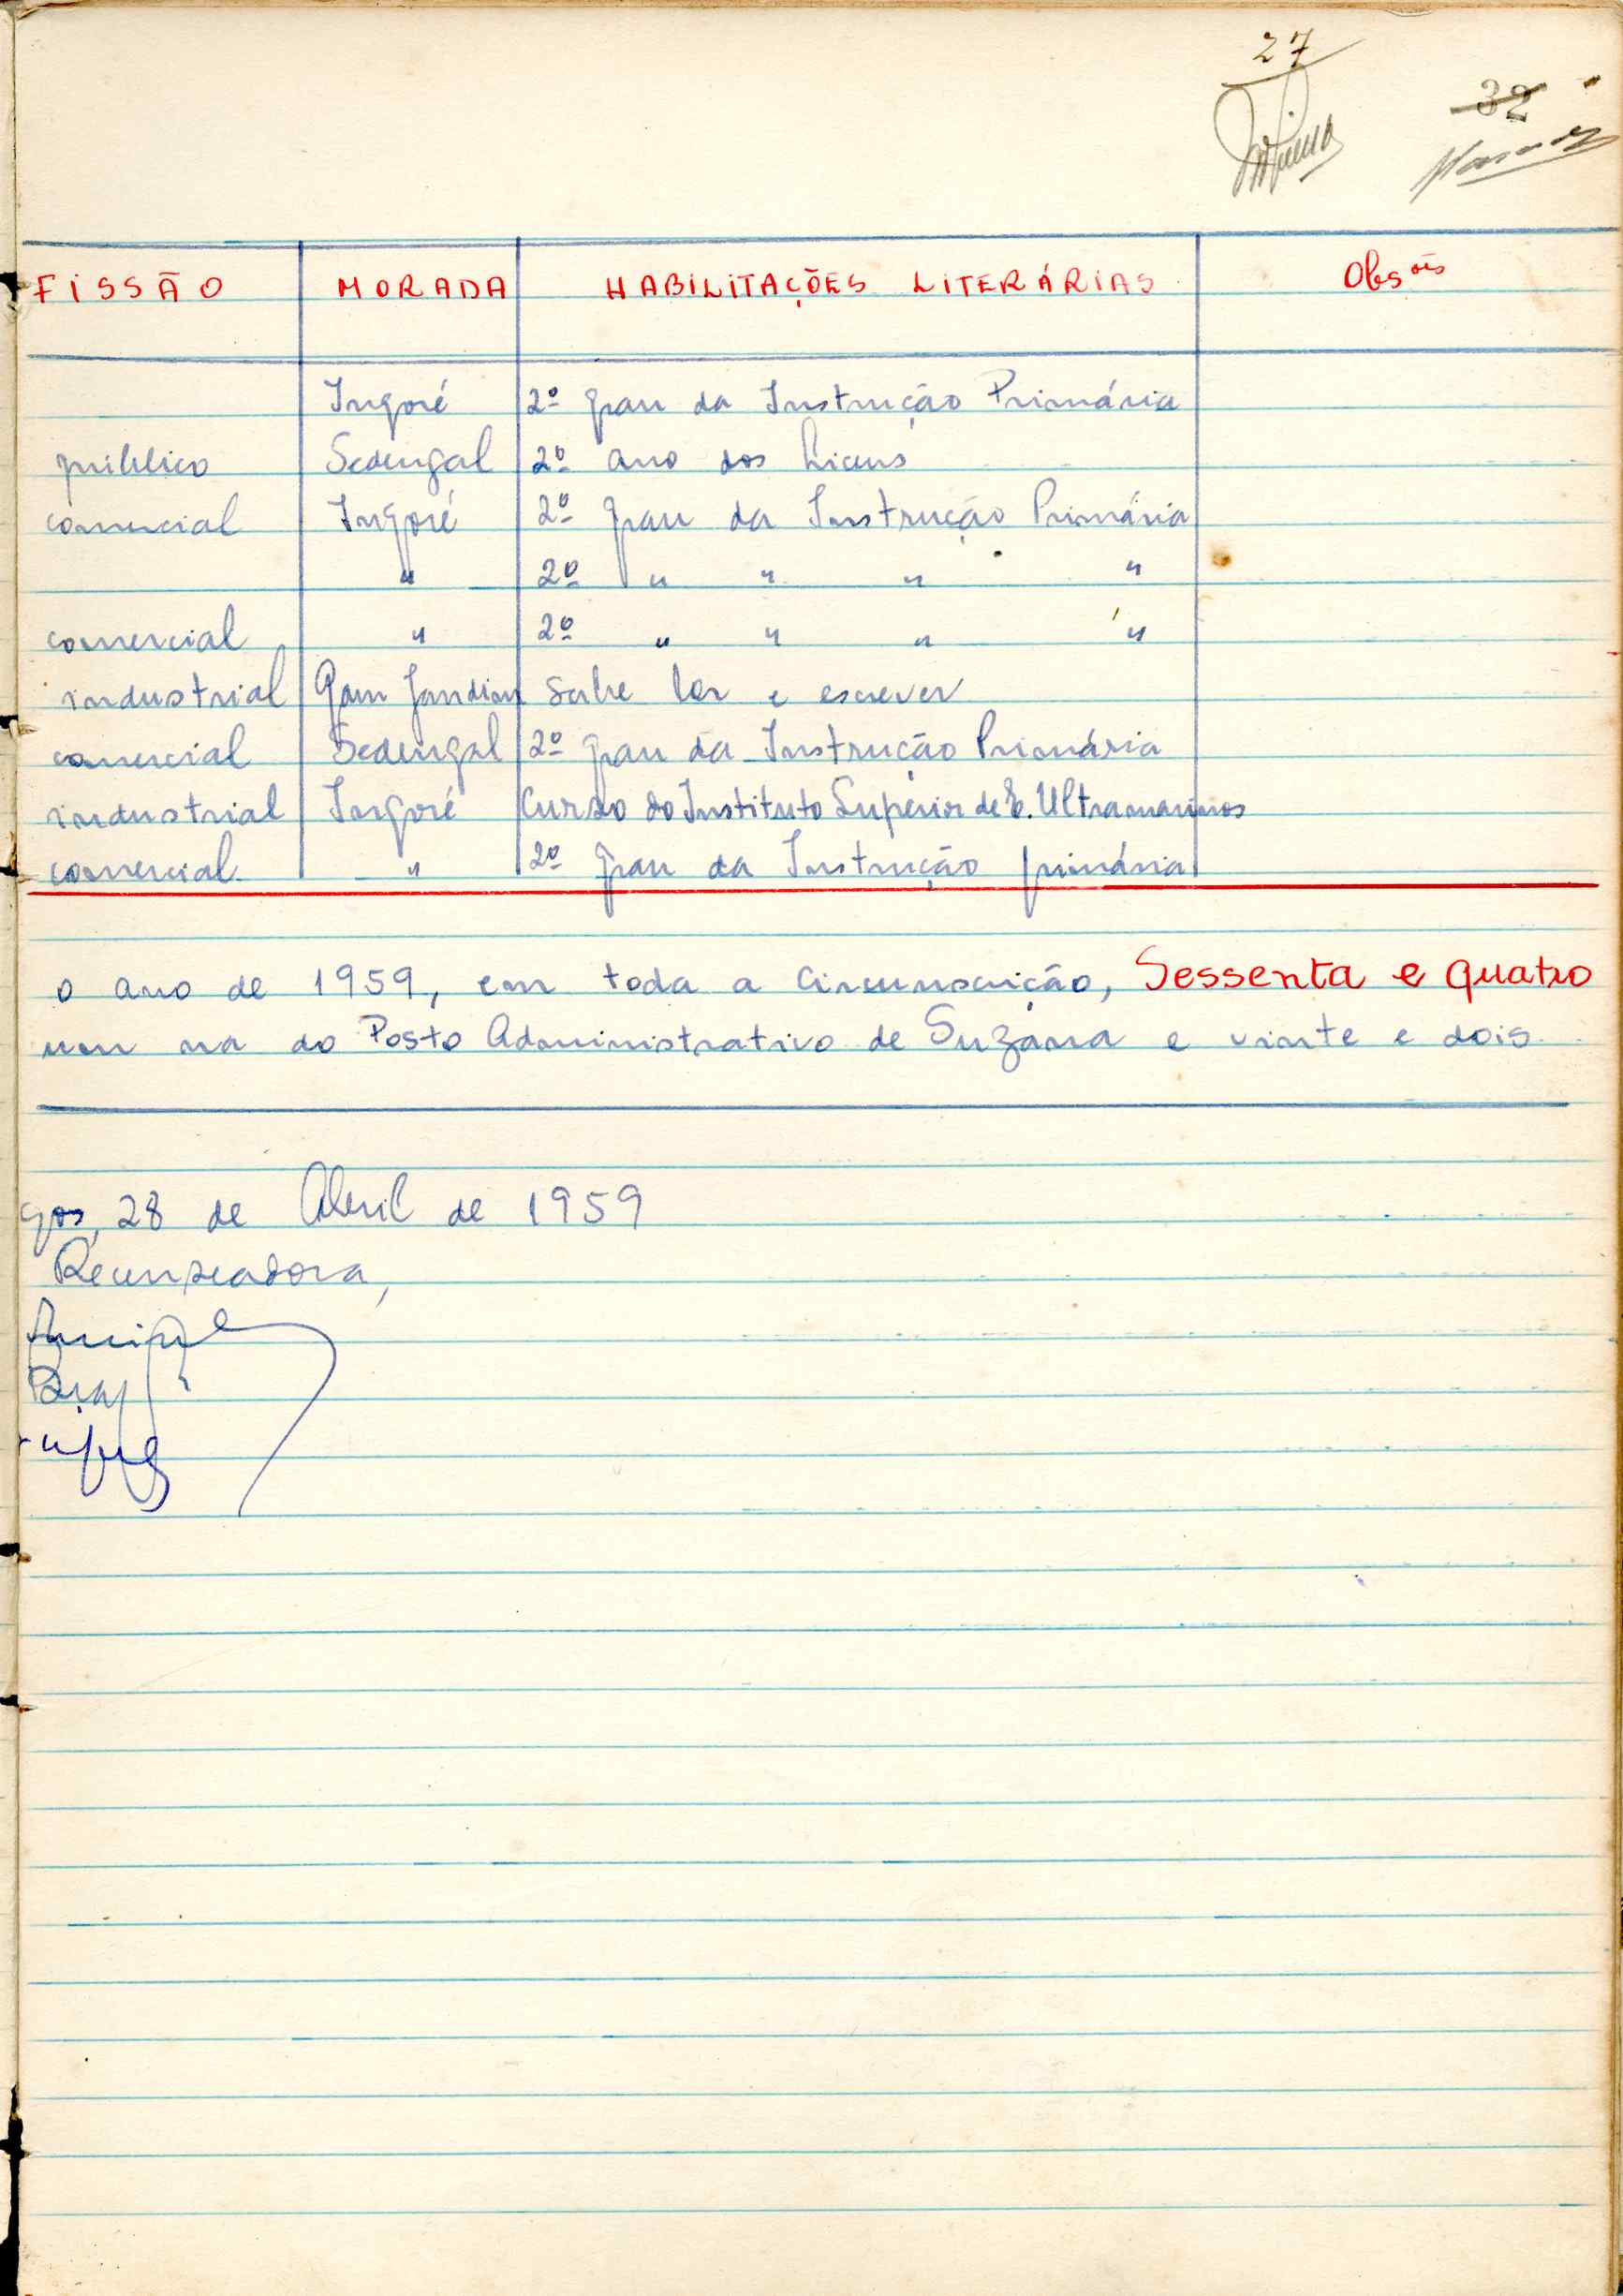 27
32
FISSÃO MORADA HABILITAÇÕES LITERÁRIAS Obsões
Ingoré 2º grau da Instrução Primária
público Sedengal 2º ano dos Liceus
comercial Ingoré 2º grau da Instrução Primária
" 2º " " " "
comercial " 2º " " " "
industrial Gam Jandim Sabe ler e escrever
comercial Sedengal 2º grau da Instrução Primária
industrial Ingoré Curso do Instituto Superior de E. Ultramarinos
comercial " 2º grau da Instrução primária
o ano de 1959, em toda a Circunscrição, Sessenta e quatro
na do Posto Administrativo de Suzana e vinte e dois
gos, 28 de Abril de 1959
Recenseadora,